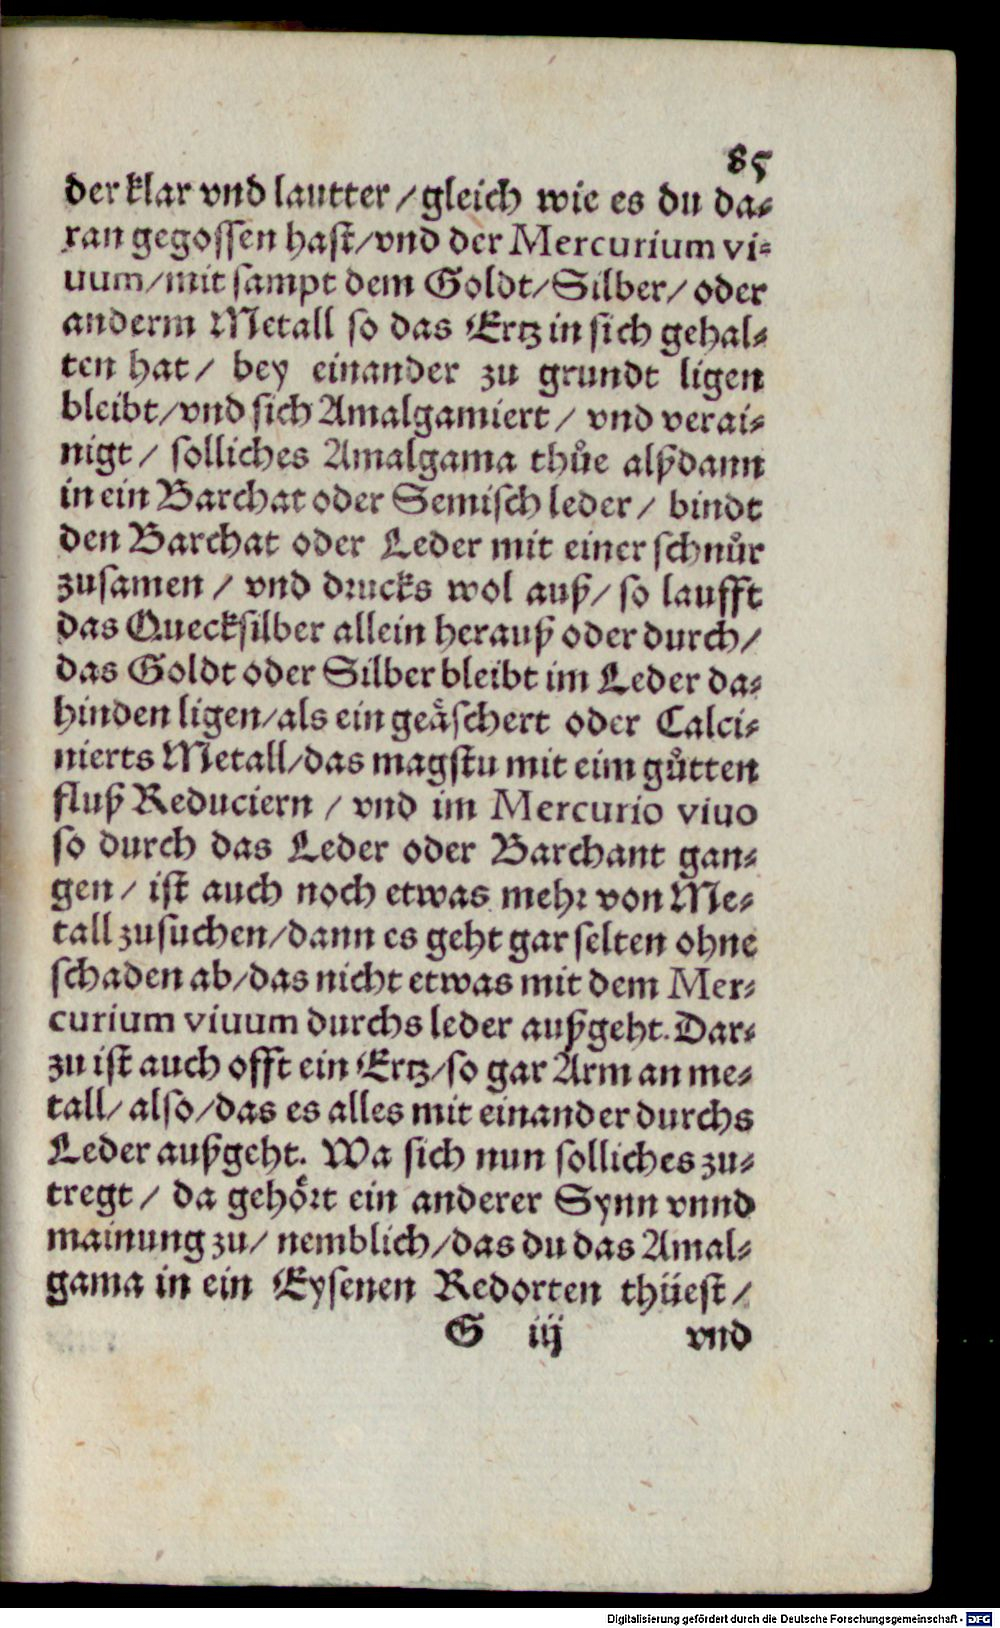 85
der klar vnd lautter / gleich wie es du da⸗
ran gegossen hast/vnd der Mercurium vi⸗
uum/mit sampt dem Goldt/Silber/ oder
anderm Metall so das Ertz in sich gehal⸗
ten hat / bey einander zu grundt ligen
bleibt/vnd sich Amalgamiert / vnd verai⸗
nigt / solliches Amalgama thůe alßdann
in ein Barchat oder Semisch leder / bindt
den Barchat oder Leder mit einer schnůr
zusamen / vnd drucks wol auß/ so laufft
das Quecksilber allein herauß oder durch/
das Goldt oder Silber bleibt im Leder da⸗
hinden ligen/als ein geäschert oder Calci⸗
nierts Metall/das magstu mit eim gůtten
fluß Reduciern / vnd im Mercurio viuo
so durch das Leder oder Barchant gan⸗
gen / ist auch noch etwas mehr von Me⸗
tall zusuchen/dann es geht gar selten ohne
schaden ab/das nicht etwas mit dem Mer⸗
curium viuum durchs leder außgeht. Dar⸗
zu ist auch offt ein Ertz/so gar Arm an me⸗
tall/ also/das es alles mit einander durchs
Leder außgeht. Wa sich nun solliches zu⸗
tregt / da gehört ein anderer Synn vnnd
mainung zu/ nemblich/das du das Amal⸗
gama in ein Eysenen Redorten thüest /
G iij vnd
Digitalisierung gefördert durch die Deutsche Forschungsgemeinschaft - DFG